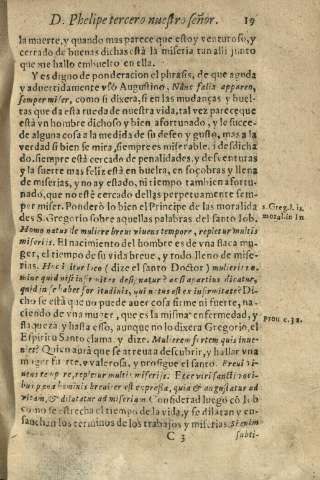 D. Phelipe tercero nuestro señor. 19
la muerte, y quando mas parece que estoy venturoso, y
cercado de buenas dichas està la miseria tan alli junto
que me hallo embuelto en ella.
Y es digno de ponderacion el phrasis, de que aguda
y aduertidamente vsò Augustino. Nunc felix apparen,
semper miser, como si dixera, si en las mudanças y buel-
tas que da esta rueda de nuestra vida, tal vez parece que
està vn hombre dichoso y bien afortunado, y le succe-
de alguna cosa a la medida de su deseo y gusto, mas a la
verdad si bien se mira, siempre es miserable, i desdicha
do, siempre està cercado de penalidades, y desuenturas
y la suerte mas feliz està en buelta, en soçobras y llena
de miserias, y no ay estado, ni tiempo tambien afortu-
nado, que no estè cercado dellas perpetuamente sem-
per miser. Ponderò lo bien el Principe de las moralida
des S. Gregorio sobre aquellas palabras del santo Iob,
s. Greg. l. 11.
moral. in 1n
Homo natus de muliere breui viuens tempore, repletur multis
miserijs. El nacimiento del hombre es de vna flaca mu-
ger, el tiempo de su vida breue, y todo lleno de mise-
rias. (dize el santo Doctor)
Di-
cho se està que no puede auer cosa firme ni fuerte, na-
ciendo de vna muger, que es la misma enfermedad, y
flaqueza y hasta esso, aunque no lo dixera Gregorio, el
Prou. c. 32.
Espiritu Santo clama y dize. Mulierem fortem quis inue-
niet? Quien aurà que se atreua descubrir, y hallar vna
muger fuerte, y valerosa, y prosigue el santo. Breui vi-
uens tempore, repletur multis miserijs. Ecce viri sancti voci-
bus pœna hominis breuiter est expressa, quia & angustatur ad
vitam, & dilatatur ad miseriam. Considerad luego cò Iob
como se estrecha el tiempo de la vida, y se dilatan y en-
sanchan los terminos de los trabajos y miserias. Si enim
C 3 subti-